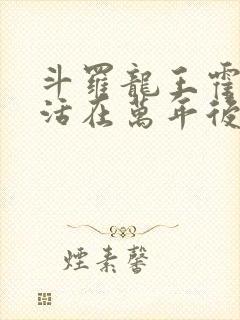 斗羅龍王霍
活在萬年後
煙素馨